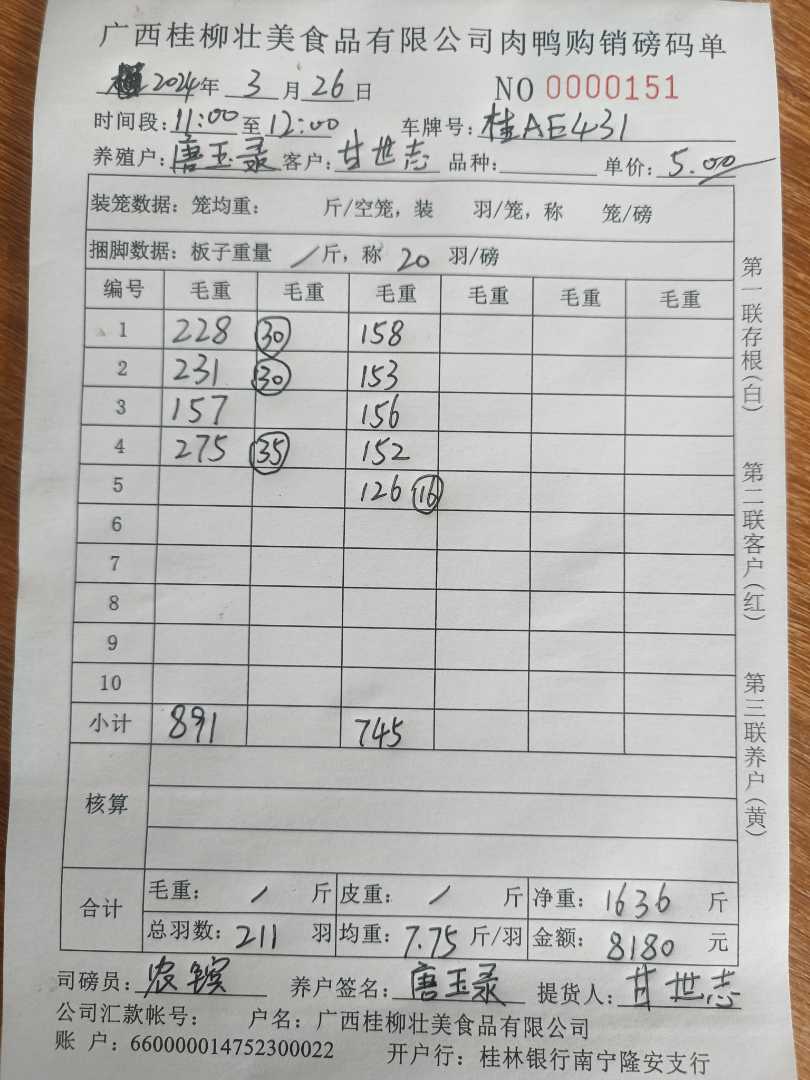 广西桂柳壮美食品有限公司肉鸭购销磅码单
2024年 3月26日 NO 0000151
时间段:11:00至12:00 车牌号:桂AE431
养殖户:唐玉录 客户:甘世志 品种: 单价:5.00
装笼数据:笼均重: 斤/空笼,装 羽/笼,称 笼/磅
捆脚数据:板子重量 / 斤,称 20 羽/磅
编号 毛重 毛重 毛重 毛重 毛重 毛重
1 228 30 158
2 231 30 153
3 157 156
4 275 35 152
5 126 16
6
7
8
9
10
小计 891 745
核算
合计 毛重: / 斤 皮重: / 斤 净重: 1636 斤
总羽数: 211 羽 均重: 7.75 斤/羽 金额: 8180 元
司磅员: 养户签名:唐玉录 提货人:甘世志
公司汇款帐号: 户名:广西桂柳壮美食品有限公司
账 户:660000014752300022 开户行:桂林银行南宁隆安支行
第一联存根(白)
第二联客户(红)
第三联养户(黄)